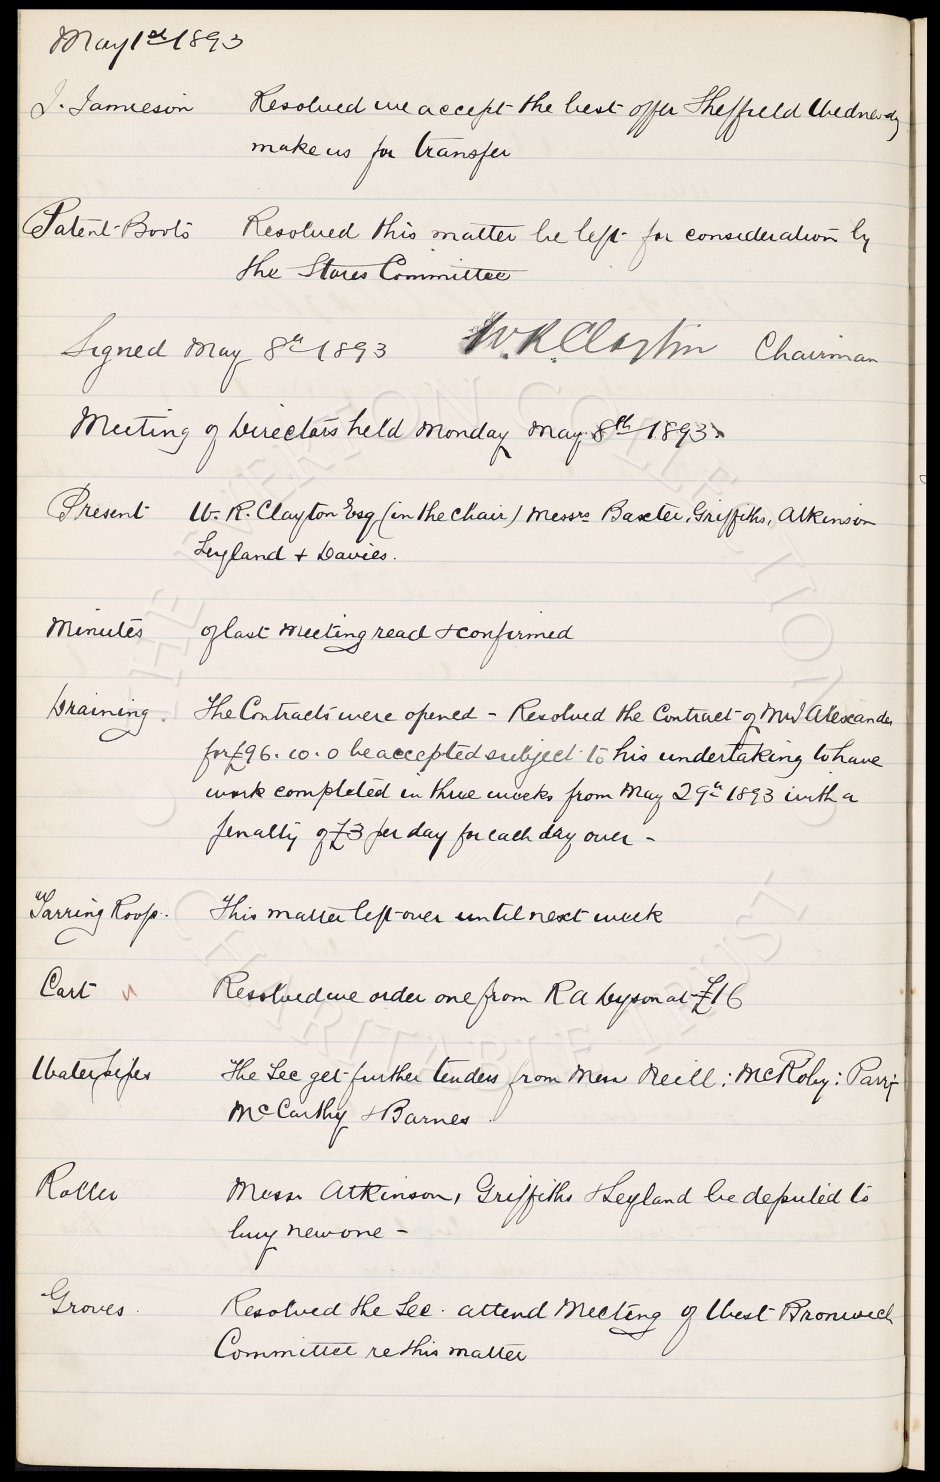 May 1st 1893
J. Jamieson Resolved we accept the best offer Sheffield Wednesdy
make us for transfer
Patent Boots Resolved this matter be left for consideration by
the Stores Committee
Signed May 8th 1893 W.R. Clayton Chairman
Meeting of Directors held Monday May 8th 1893.
Present W. R. Clayton Esq (in the Chair) Messrs Baxter, Griffiths, Atkinson
Leyland & Davies.
Minutes of last Meeting read & confirmed
Draining. The Contracts were opened - Resolved the Contract of Mr J Alexander
for £96. 10. 0 be accepted subject to his undertaking to have
work completed in three weeks from May 29th 1893 with a
penalty of £3 per day for each day over -
Tarring Roofs. This matter left over until next week
Cart Resolved we order one from R A Dyson at £16
Water pipes The Sec get further tenders from Mess Neill: McRoby: Parry
McCarthy & Barnes
Roller Messrs Atkinson, Griffiths & Leyland be deputed to
buy new one -
Groves. Resolved the Sec. attend Meeting of West Bromwich
Committee re this matter
THE EVERTON COLLECTION
CHARITABLE TRUST